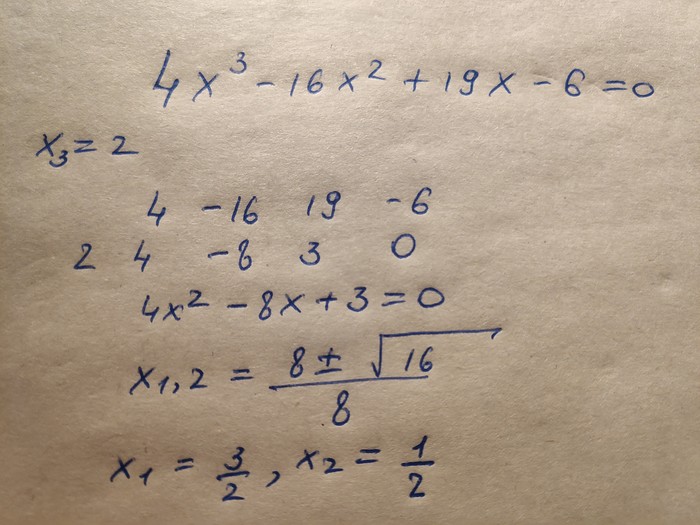 4x³ - 16x² + 19x - 6 = 0
x₃ = 2
4 -16 19 -6
2 4 -8 3 0
4x² - 8x + 3 = 0
x₁,₂ = (8 ± √16) / 8
x₁ = 3/2, x₂ = 1/2